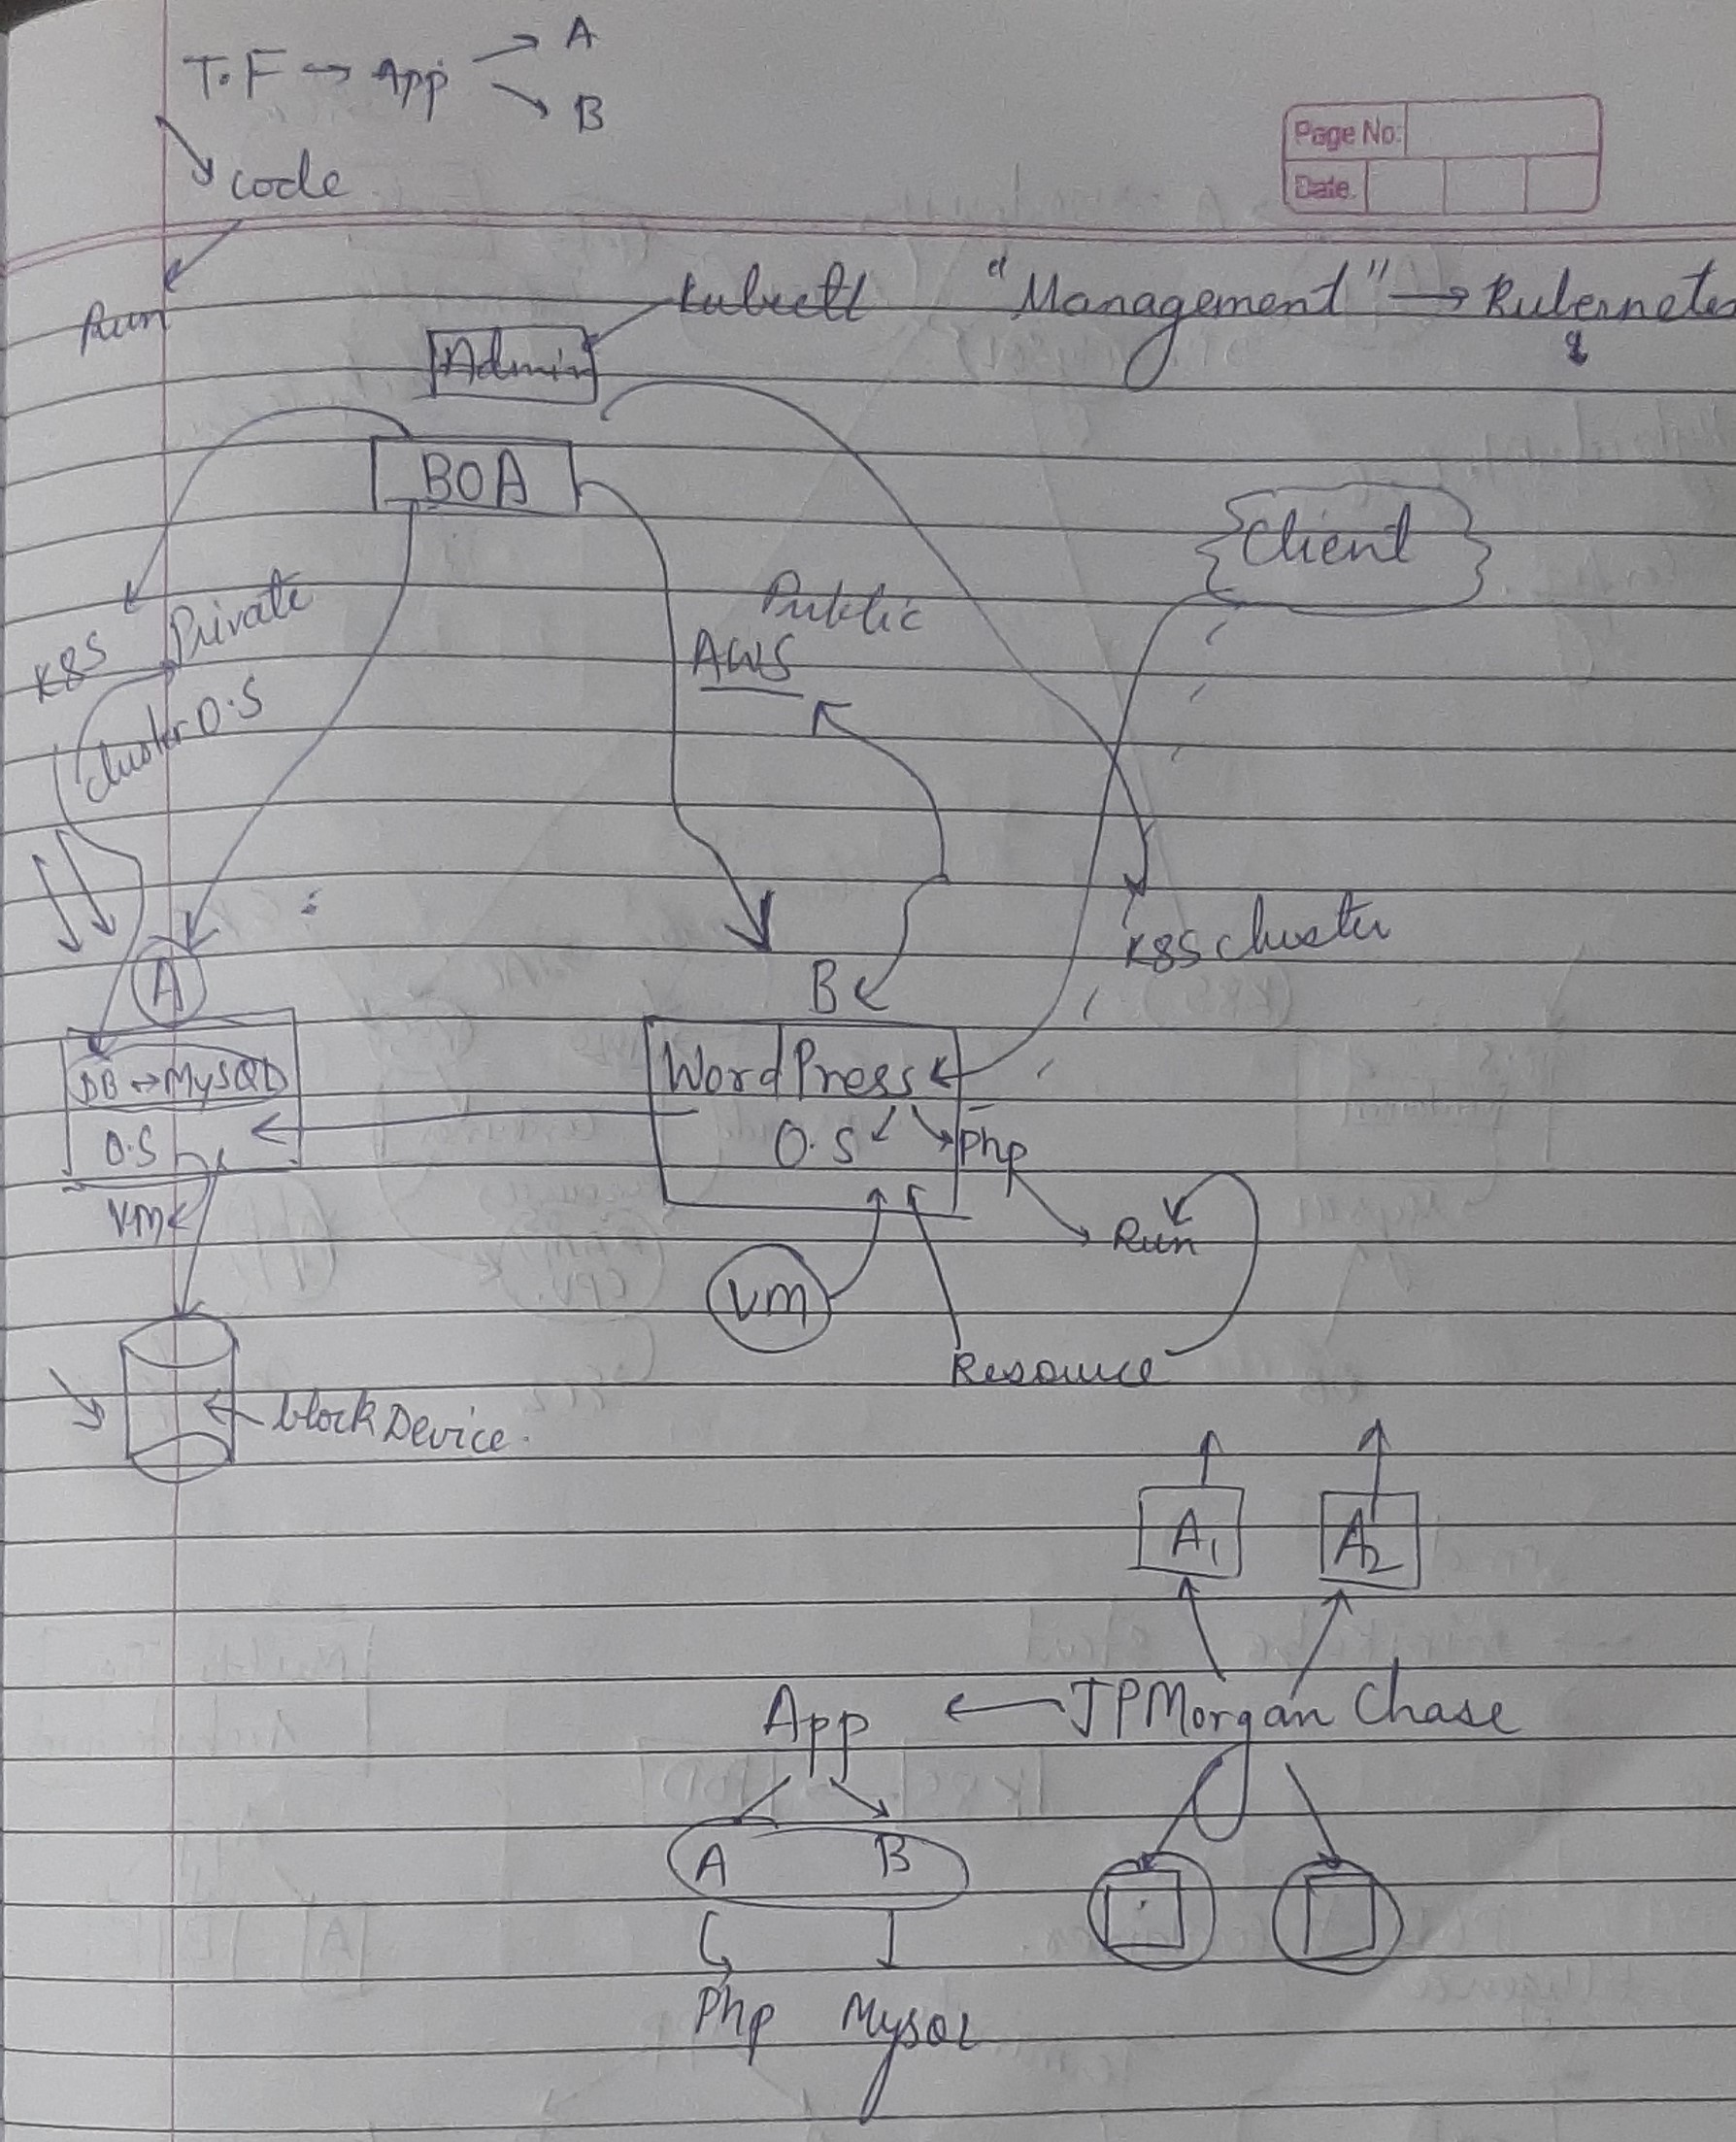 T.F → App → A
→ B
code
Run
Page No:
Date.
kubectl "Management" → Kubernetes
Admin
BOA
Client
Private
Public
K8S
AWS
Cluster O.S
K8S cluster
A
B
DB ↔ MySQL
WordPress
O.S
O.S
Php
VM
Run
VM
Resource
block Device.
A1 A2
App ← JPMorgan Chase
A B
Php Mysql